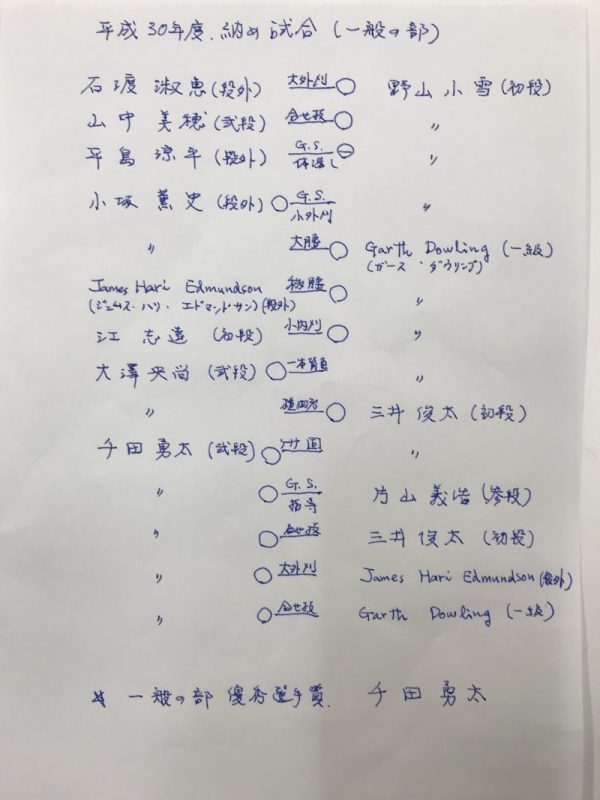 平成30年度.納め試合(一般の部)
石渡 淑恵(段外) 大外刈 ○ 野山 小雪(初段)
山中 美穂(弐段) 合せ技 ○ 〃
平島 涼平(段外) G.S. 体落し ⊖ 〃
小坂 薫史(段外) ○ G.S. 小外刈 〃
〃 大腰 ○ Garth Dowling(一級)
(ガース・ダウリング)
James Hari Edmundson 払腰 ○ 〃
(ジェームス・ハリ・エドマンドサン)(段外)
江 志遠(初段) 小内刈 ○ 〃
大澤央尚(弐段) ○ 一本背負 〃
〃 縦四方 ○ 三井俊太(初段)
千田勇太(弐段) ○ ケサ固 〃
〃 ○ G.S. 指導 片山義浩(参段)
〃 ○ 合せ技 三井俊太(初段)
〃 ○ 大外刈 James Hari Edmundson(段外)
〃 ○ 合せ技 Garth Dowling(一級)
☆ 一般の部 優秀選手賞. 千田勇太